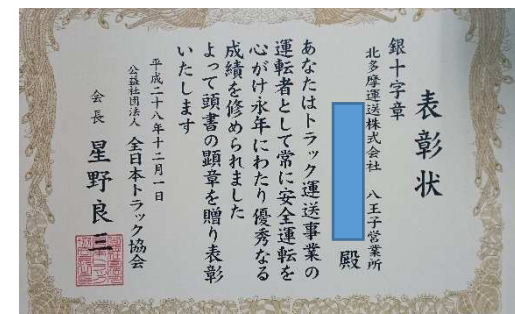 表彰状
銀十字章
北多摩運送株式会社 八王子営業所
殿
あなたはトラック運送事業の
運転者として常に安全運転を
心がけ永年にわたり優秀なる
成績を修められました
よって頭書の顕章を贈り表彰
いたします
平成二十八年十二月一日
公益社団法人 全日本トラック協会
会長 星野良三